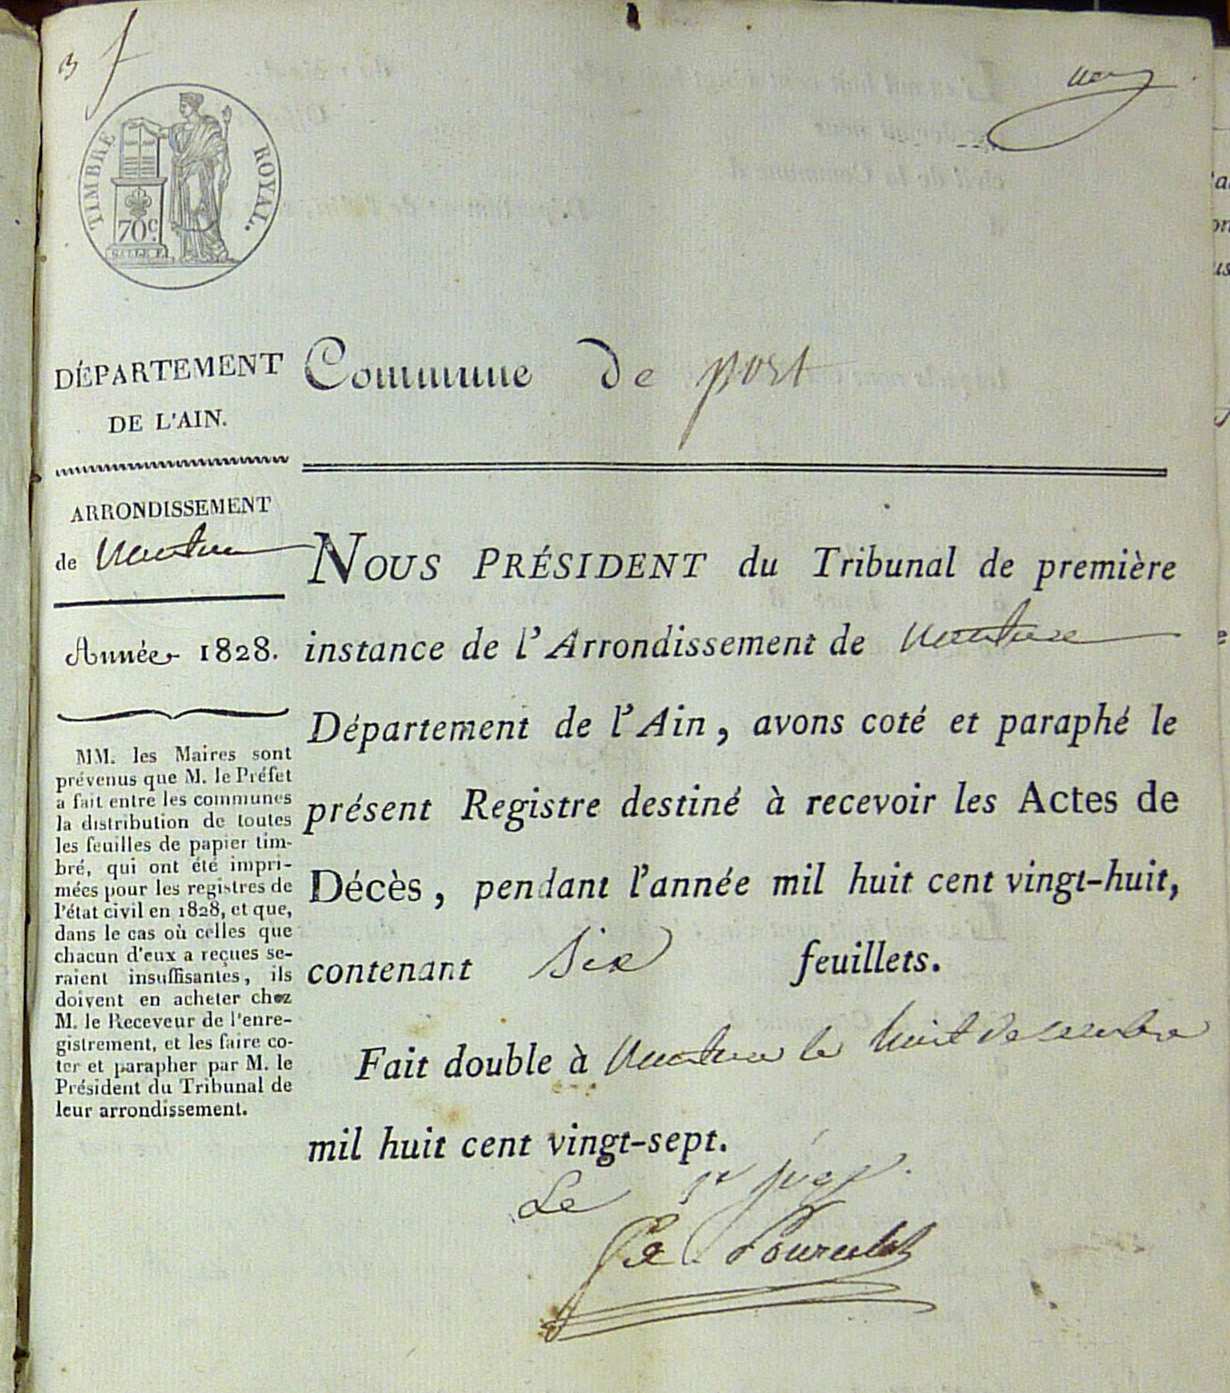 TIMBRE ROYAL.
70c.
DÉPARTEMENT
DE L'AIN.
ARRONDISSEMENT
de Nantua
Année 1828.
MM. les Maires sont
prévenus que M. le Préfet
a fait entre les communes
la distribution de toutes
les feuilles de papier tim-
bré, qui ont été impri-
mées pour les registres de
l'état civil en 1828, et que,
dans le cas où celles que
chacun d'eux a reçues se-
raient insuffisantes, ils
doivent en acheter chez
M. le Receveur de l'enre-
gistrement, et les faire co-
ter et parapher par M. le
Président du Tribunal de
leur arrondissement.
Commune de port
NOUS PRÉSIDENT du Tribunal de première
instance de l'Arrondissement de Nantua
Département de l'Ain, avons coté et paraphé le
présent Registre destiné à recevoir les Actes de
Décès, pendant l'année mil huit cent vingt-huit,
contenant Six feuillets.
Fait double à Nantua le huit decembre
mil huit cent vingt-sept.
Le